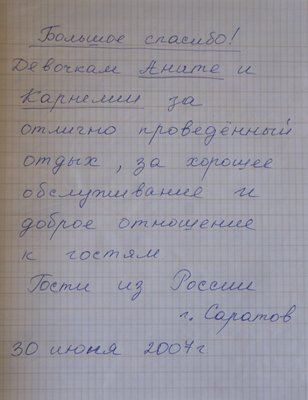 Большое спасибо!
Девочкам Аните и
Карнелии за
отлично проведённый
отдых, за хорошее
обслуживание и
доброе отношение
к гостям
Гости из России
г. Саратов
30 июня 2007г